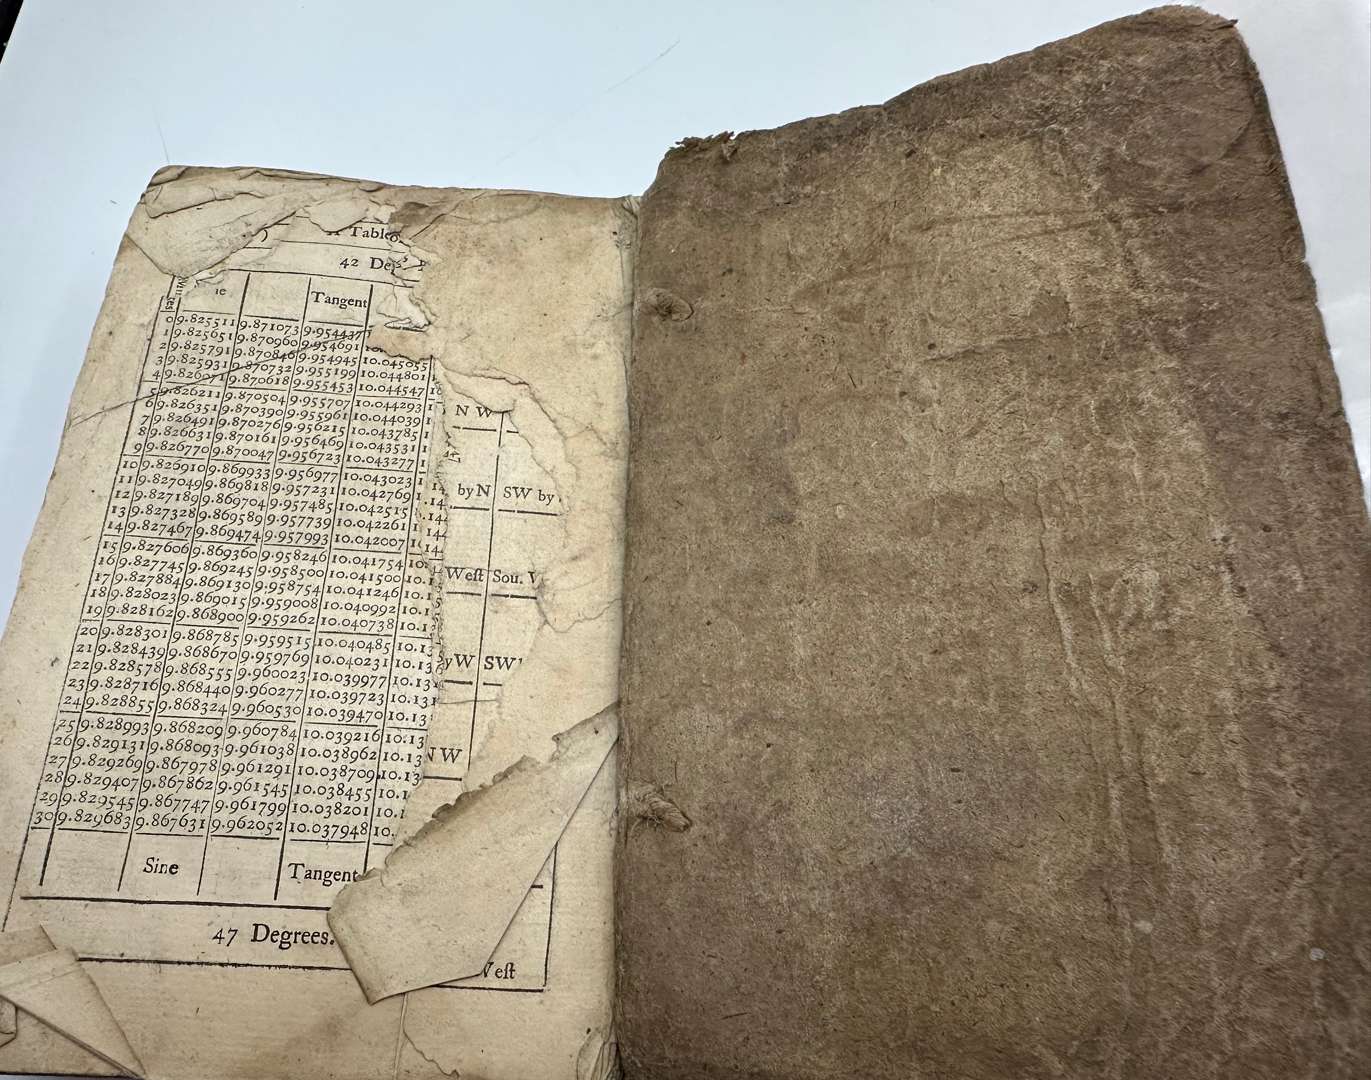 A Table o
42 De
ie Tangent
0 9.825511 9.871073 9.954437
1 9.825651 9.870960 9.954691
2 9.825791 9.870846 9.954945 10.045055
3 9.825931 9.870732 9.955199 10.044801
4 9.826071 9.870618 9.955453 10.044547
5 9.826211 9.870504 9.955707 10.044293
6 9.826351 9.870390 9.955961 10.044039
7 9.826491 9.870276 9.956215 10.043785
8 9.826631 9.870161 9.956469 10.043531
9 9.826770 9.870047 9.956723 10.043277
10 9.826910 9.869933 9.956977 10.043023
11 9.827049 9.869818 9.957231 10.042769
12 9.827189 9.869704 9.957485 10.042515
13 9.827328 9.869589 9.957739 10.042261
14 9.827467 9.869474 9.957993 10.042007
15 9.827606 9.869360 9.958246 10.041754
16 9.827745 9.869245 9.958500 10.041500
17 9.827884 9.869130 9.958754 10.041246
18 9.828023 9.869015 9.959008 10.040992
19 9.828162 9.868900 9.959262 10.040738
20 9.828301 9.868785 9.959515 10.040485
21 9.828439 9.868670 9.959769 10.040231
22 9.828578 9.868555 9.960023 10.039977
23 9.828716 9.868440 9.960277 10.039723
24 9.828855 9.868324 9.960530 10.039470
25 9.828993 9.868209 9.960784 10.039216
26 9.829131 9.868093 9.961038 10.038962
27 9.829269 9.867978 9.961291 10.038709
28 9.829407 9.867862 9.961545 10.038455
29 9.829545 9.867747 9.961799 10.038201
30 9.829683 9.867631 9.962052 10.037948
Sine Tangent
47 Degrees.
N W
by N SW by
Weſt Sou. W
yW SW
NW
Weſt